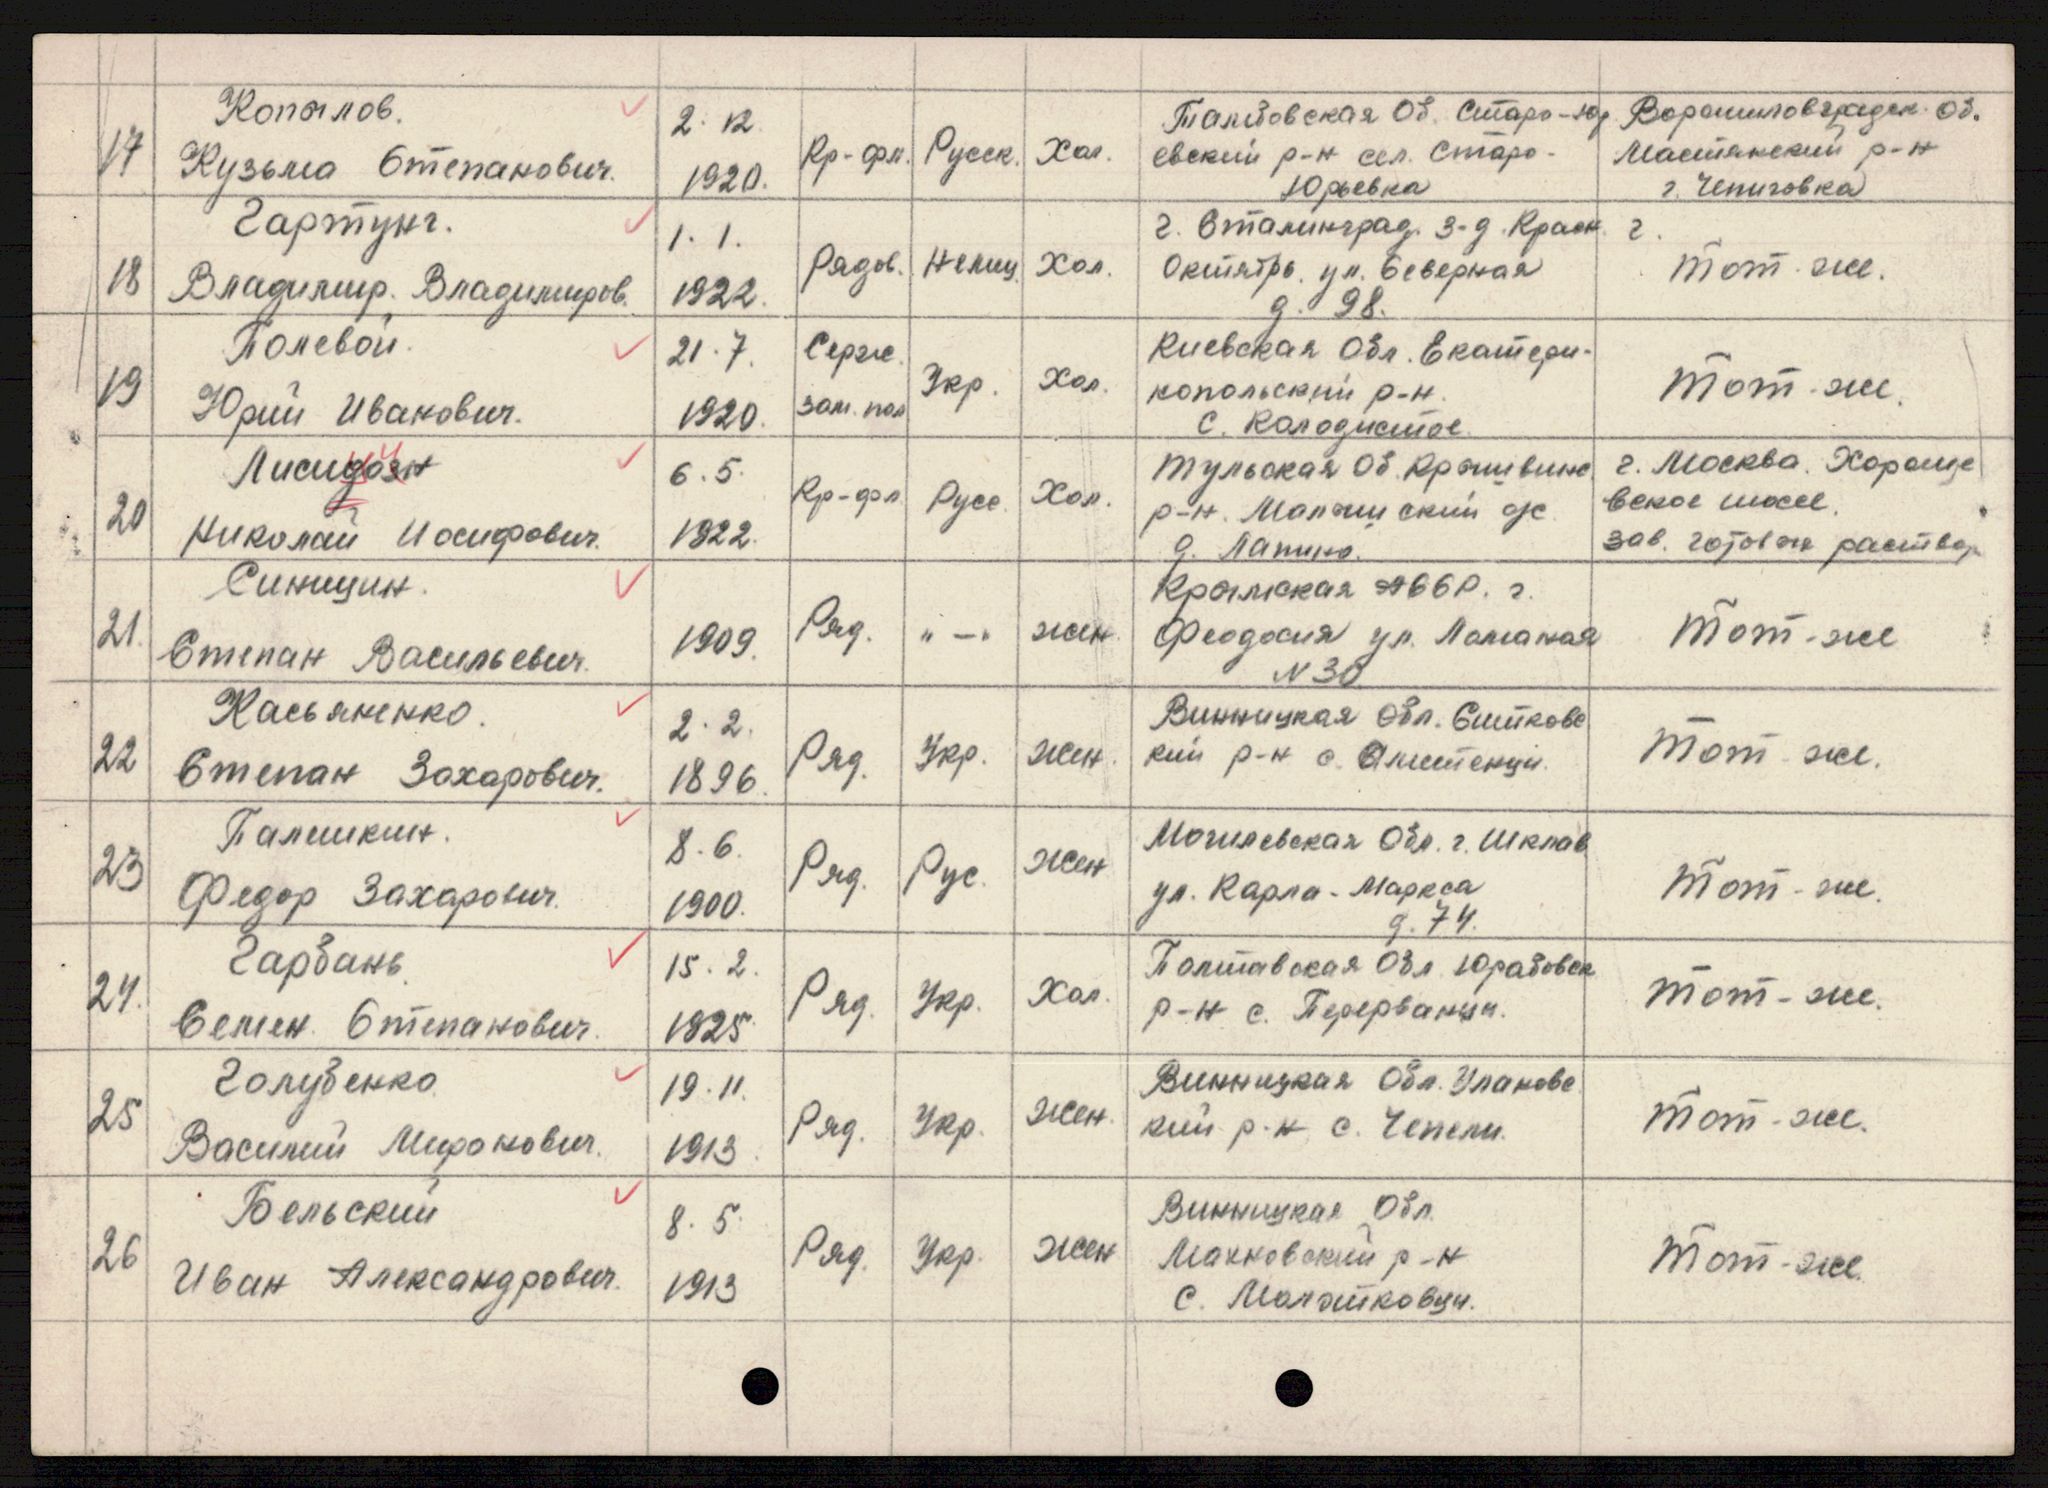 17 Копылов. 2. 12. Кр-фл. Русск. Хол. Тамбовская Об. Старо-Юр Ворошиловградск. Об.
Кузьма Степанович. 1920. евский р-н сел. Старо- р-н
Юрьевка г.
18 Гартунг. 1. 1. Рядов. Немец Хол. г. Сталинград. з-д. Красн. г.
Владимир. Владимиров. 1922. Октябрь. ул. Северная Тот-же.
д. 98.
19 Полевой. 21. 7. Серж. Укр. Хол. Киевская Обл. Екатери-
Юрий Иванович. 1920. зам. пол нопольский р-н. Тот-же.
с. Колодистое.
20 6. 5. Кр-фл Русс. Хол. Тульская Об. Крапивинс г. Москва. Хороше
Николай Иосифович. 1922. р-н. вское шоссе.
д. Лапино. зав. раствор
21. Синицин. Ряд. "—" жен. Крымская АССР. г.
Степан Васильевич. 1909. Феодосия ул. Тот-же
N 30
22 Касьяненко. 2. 2. Ряд. Укр. Жен. Винницкая Обл. Ситковс
Степан Захарович. 1896. кий р-н с. Тот-же.
23 Палишкин. 8. 6. Ряд. Рус. Жен Могилевская Обл. г. Шклав
Федор Захарович. 1900. ул. Карла-Маркса Тот-же.
д. 74.
24. Гарбань 15. 2. Ряд. Укр. Хол. Полтавская Обл. р-н с. Перерванци. Тот-же.
Семен. Степанович. 1925
25 Голубенко 19. 11. Ряд. Укр. Жен. Винницкая Обл. Улановс
Василий Миронович. 1913. кий р-н с. Чепели. Тот-же.
26 Бельский 8. 5. Ряд. Укр. Жен Винницкая Обл.
Иван Александрович. 1913 Махновский р-н Тот-же.
с.